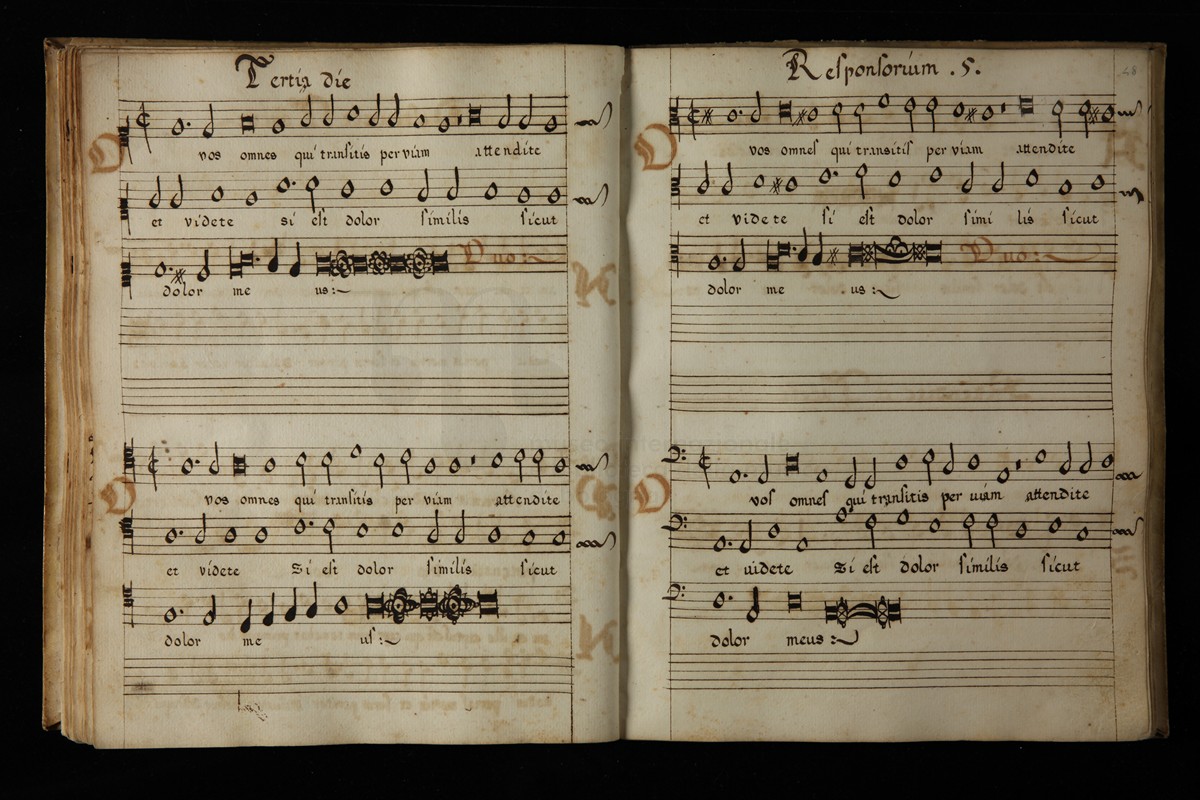 Tertia die
O
vos omnes qui transitis per viam attendite
et videte si est dolor similis sicut
Duo:
dolor me us:
O
vos omnes qui transitis per viam attendite
et videte Si est dolor similis sicut
dolor me us:
Responsorium .5.
O
vos omnes qui transitis per viam attendite
et videte si est dolor simi lis sicut
Duo:
dolor me us:
O
vos omnes qui transitis per uiam attendite
et uidete Si est dolor similis sicut
dolor meus: